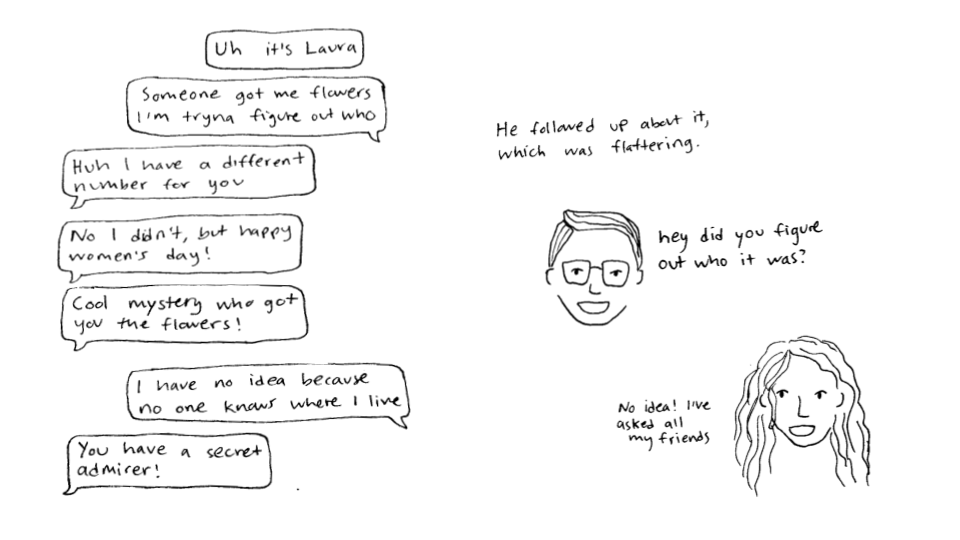 Uh it's Laura
Someone got me flowers
I'm tryna figure out who
Huh I have a different
number for you
No I didn't, but happy
women's day!
Cool mystery who got
you the flowers!
I have no idea because
no one knows where I live
You have a secret
admirer!
He followed up about it,
which was flattering.
hey did you figure
out who it was?
No idea! I've
asked all
my friends